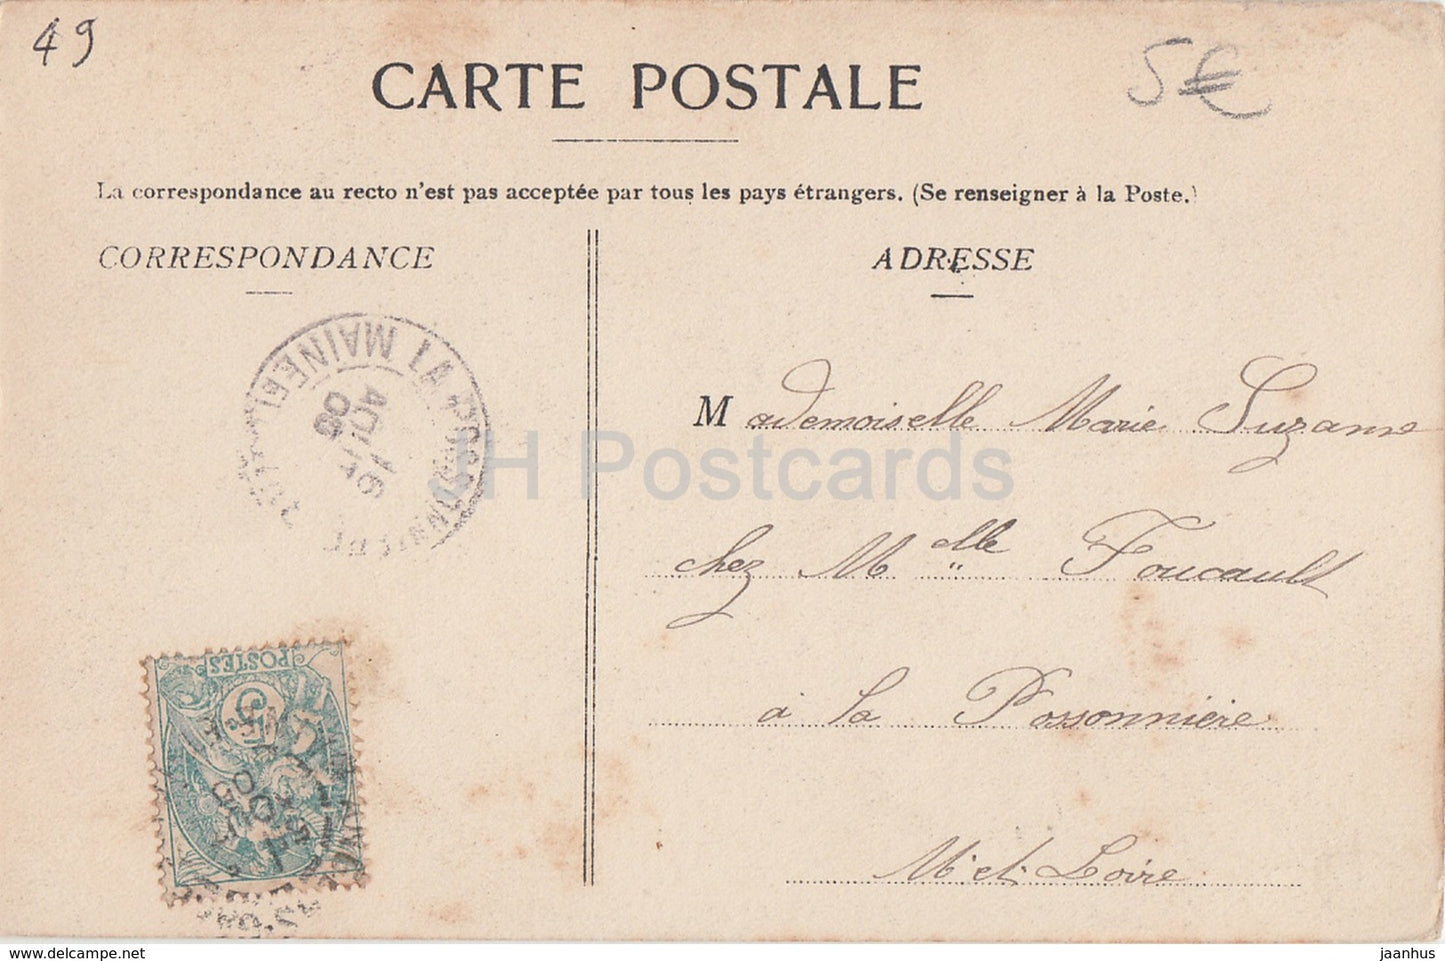 49
5€
CARTE POSTALE
La correspondance au recto n'est pas acceptée par tous les pays étrangers. (Se renseigner à la Poste.)
CORRESPONDANCE
ADRESSE
LA POSSONNIERE
MAINE ET
16
AOUT
08
Mademoiselle Marie Suzanne
chez Melle Foucault
à la Possonnière
M. et. Loire
POSTES
5
JH Postcards
www.delcampe.net
jaanhus